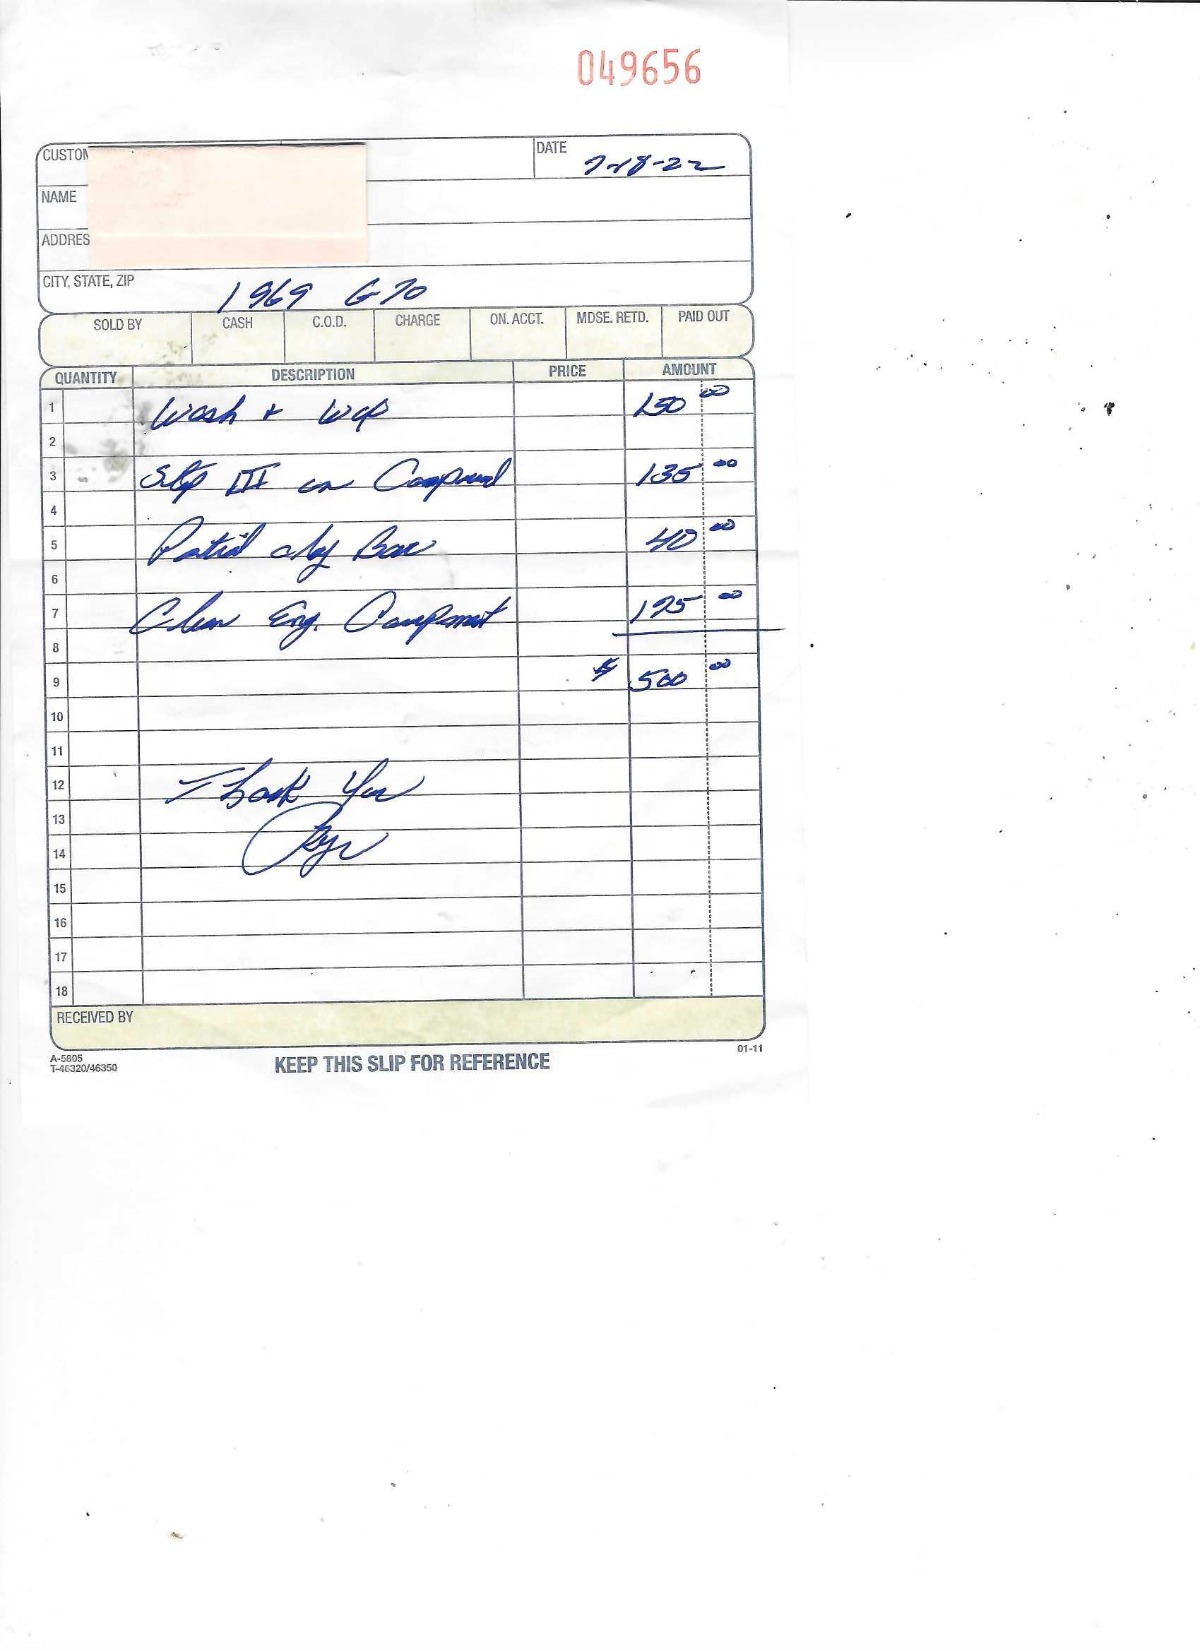 049656
CUSTO
DATE 7-18-22
NAME
ADDRES
CITY, STATE, ZIP
1969 GTO
SOLD BY CASH C.O.D. CHARGE ON. ACCT. MDSE. RETD. PAID OUT
QUANTITY DESCRIPTION PRICE AMOUNT
1 Wash + Wax 150 00
2
3 Step III on Compound 135 00
4
5 Partial clay Bar 40 00
6
7 Clean Eng. Compartment 175 00
8
9 $ 500 00
10
11
12 Thank You
13
14
15
16
17
18
RECEIVED BY
A-5805
T-46320/46350
KEEP THIS SLIP FOR REFERENCE
01-11